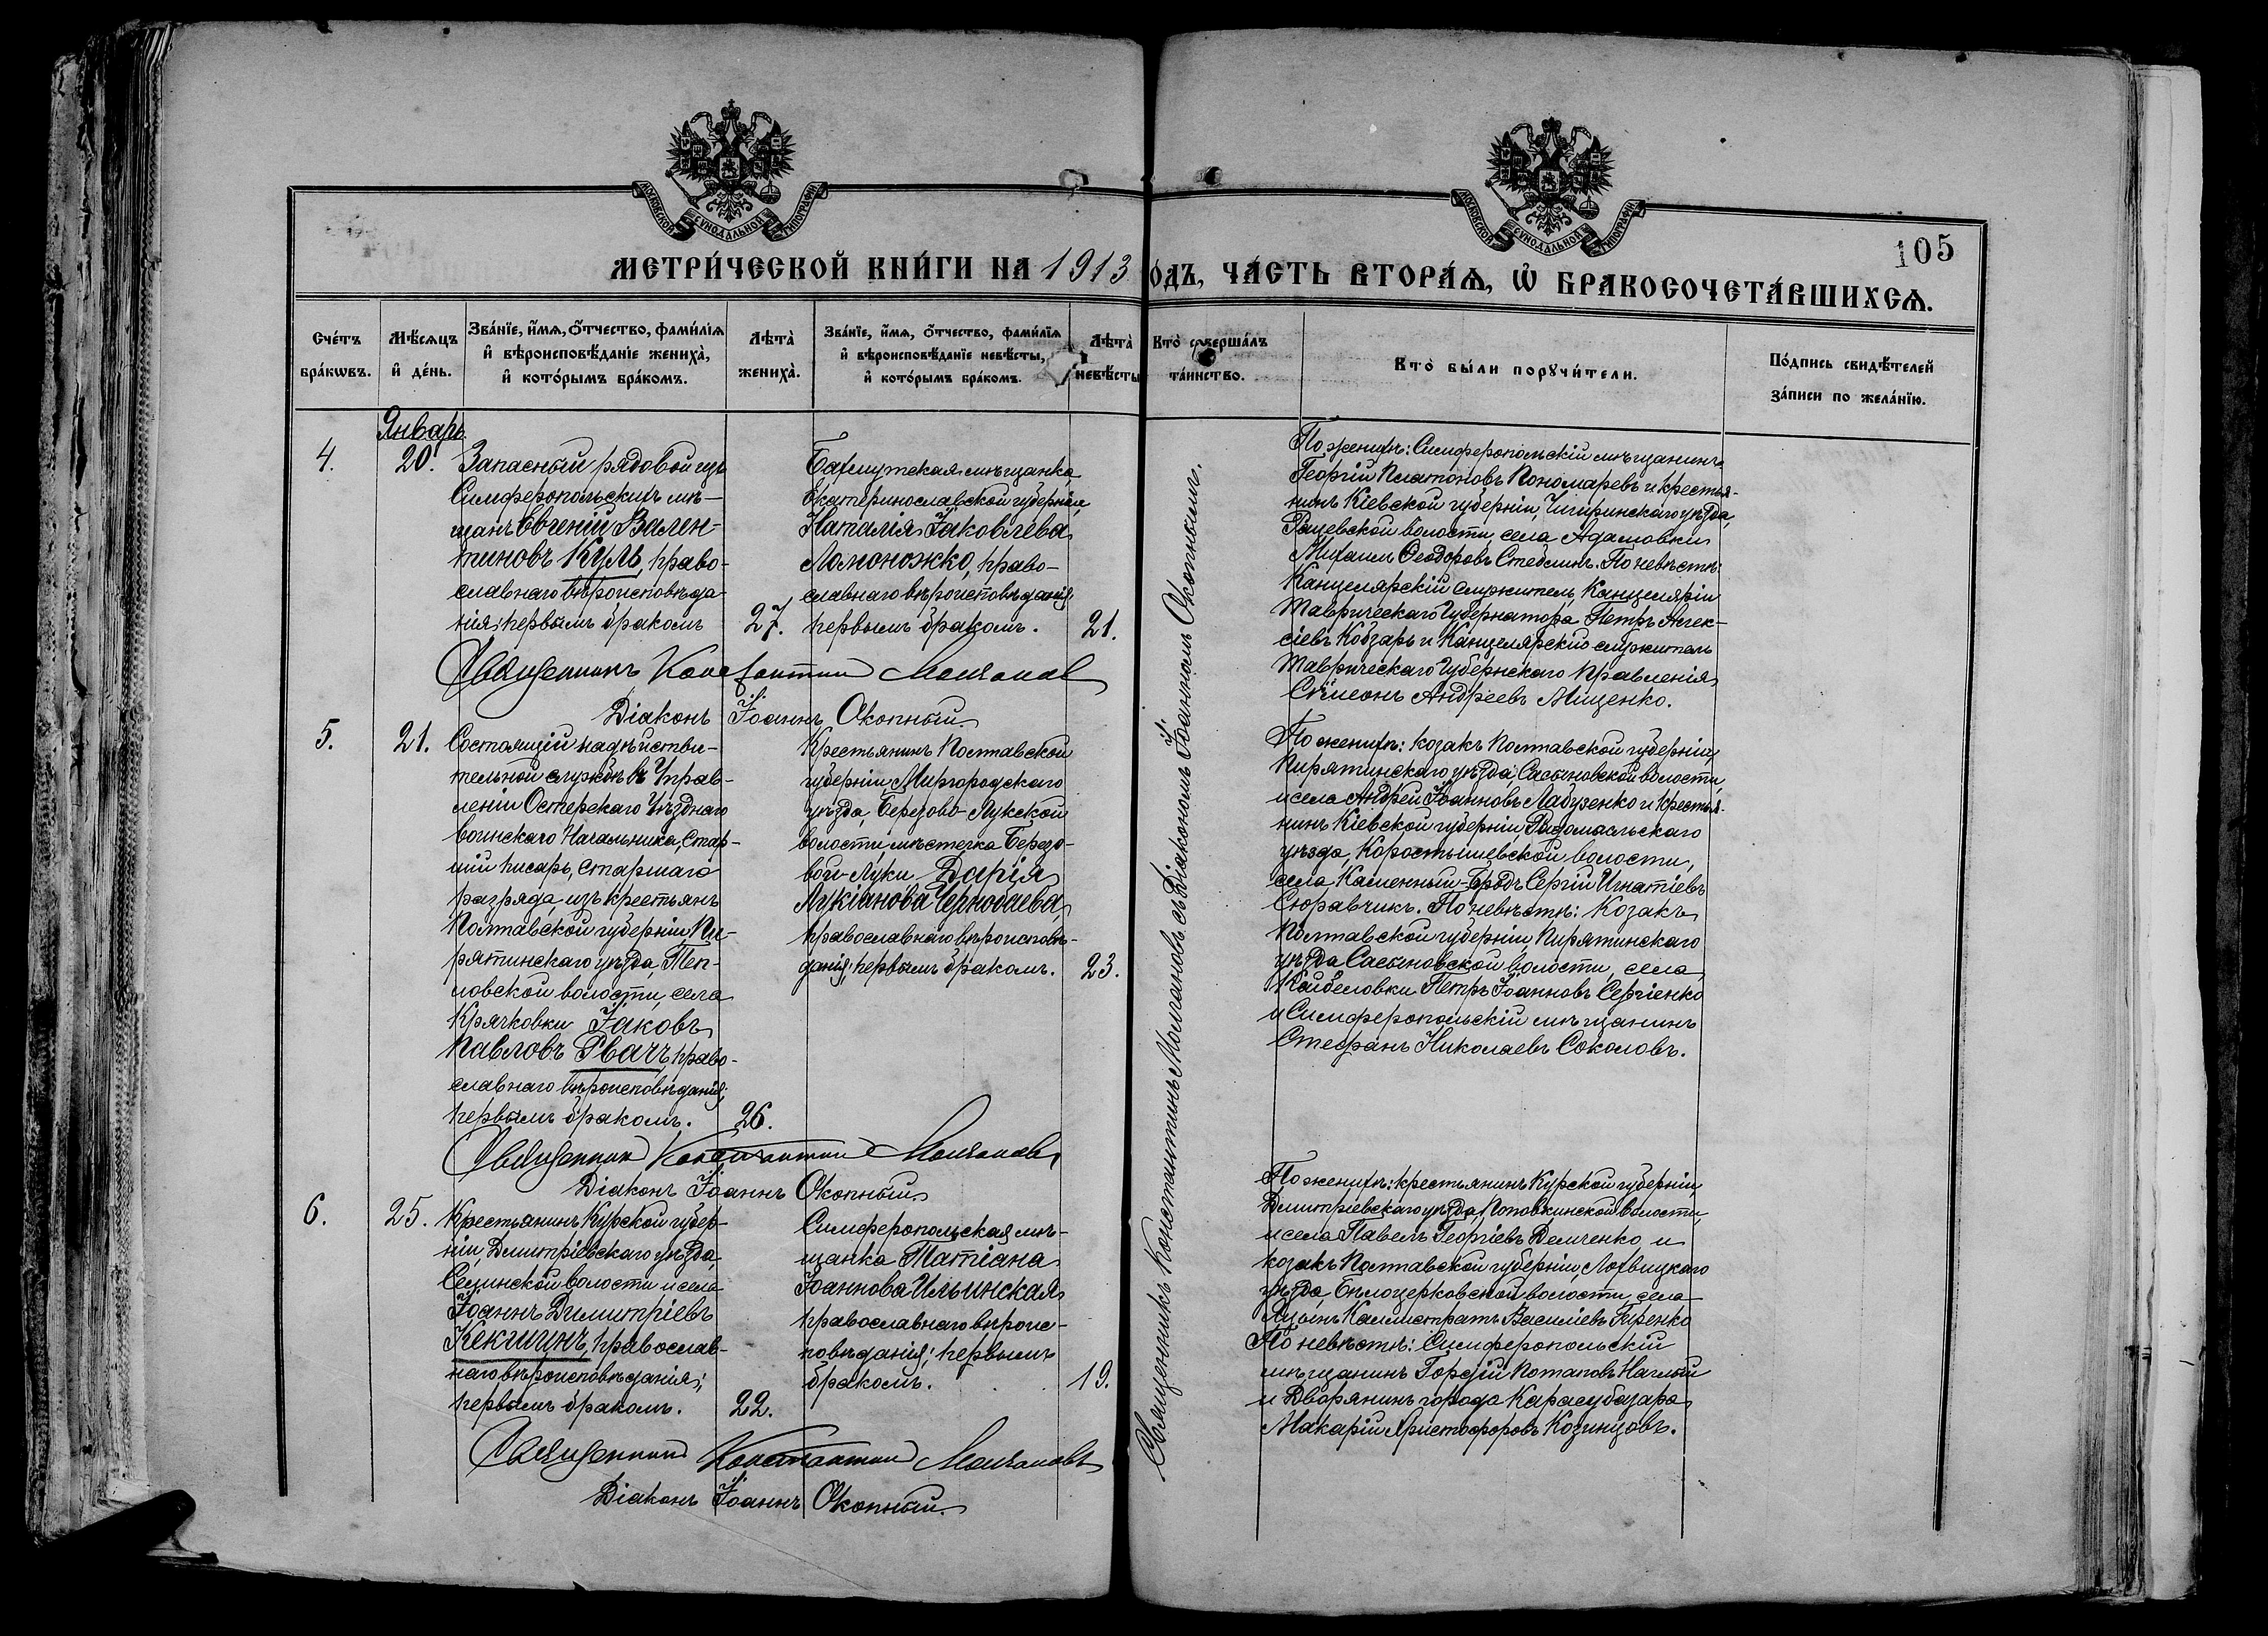 МОСКОВСКОЙ СУНОДАЛЬНОЙ ТИПОГРАФІИ
МОСКОВСКОЙ СУНОДАЛЬНОЙ ТИПОГРАФІИ
105
МЕТРИ́ЧЕСКОЙ КНИ́ГИ НА 1913
ОДЪ, ЧА́СТЬ ВТОРА́Ѧ, Ѡ БРАКОСОЧЕТА́ВШИХСѦ.
Сче́тъ бра́кѡвъ.
Мѣ́сѧцъ и де́нь.
Зва́нїе, и́мѧ, ѻ́тчество, фами́лїѧ и вѣроисповѣ́данїе жениха̀, и кото́рымъ бра́комъ.
Лѣта̀ жениха̀.
Зва́нїе, и́мѧ, ѻ́тчество, фами́лїѧ и вѣроисповѣ́данїе невѣ́сты, и кото́рымъ бра́комъ.
Лѣта̀ невѣ́сты
Кто̀ соверша́лъ та́инство.
Кто̀ бы́ли порꙋчи́тели.
По́дпись свидѣ́телей за́писи по жела́нїю.
Январь
4.
20.
Запасный рядовой изъ
Симферопольскихъ мѣ-
щанъ Евгеній Вален-
тиновъ Куль, право-
славнаго вѣроисповѣда
нія; первымъ бракомъ
27.
Бахмутская мѣщанка,
Екатеринославской губерніи,
Наталія Іаковлева
Ломоножко, право-
славнаго вѣроисповѣданія;
первымъ бракомъ.
21.
Священникъ Константинъ Молчановъ
Діаконъ Іоаннъ Окопный.
По женихѣ: Симферопольскій мѣщанинъ
Георгій Платоновъ Пономаревъ и крестья-
нинъ Кіевской губерніи, Чигиринскаго уѣзда,
волости, села Адамовки
Михаилъ Ѳеодоровъ По невѣстѣ:
Канцелярскій служитель Канцеляріи
Таврическаго Губернатора Петръ Алек-
сіевъ Кобзарь и Канцелярскій служитель
Таврическаго Губернскаго Правленія
Сѵмеонъ Андреевъ Мищенко.
Священникъ Константинъ Молчановъ съ Діакономъ Іоанномъ Окопнымъ.
5.
21.
Состоящій на дѣйстви-
тельной службѣ въ Управ-
леніи Остерскаго Уѣзднаго
воинскаго Начальника, Стар-
шій писарь, старшаго
разряда, изъ крестьянъ
Полтавской губерніи Пи-
рятинскаго уѣзда, Теп-
ловской волости, села
Крячковки Іаковъ
Павловъ Рвачъ, право-
славнаго вѣроисповѣданія;
первымъ бракомъ.
26.
Крестьянинъ Полтавской
губерніи, Миргородскаго
уѣзда, Березово-Лукской
волости, мѣстечка Березо-
вой-Луки Дарія
Лукіанова Чернобаева,
православнаго вѣроисповѣ-
данія; первымъ бракомъ.
23.
Священникъ Константинъ Молчановъ
Діаконъ Іоаннъ Окопный.
По женихѣ: козакъ Полтавской губерніи,
Пирятинскаго уѣзда, Сасыновской волости,
и села Андрей Іоанновъ Лабузенко и крестья-
нинъ Кіевской губерніи Радомысльскаго
уѣзда, Коростышевской волости,
села Каменный-Бродъ Сергій Игнатіевъ
Сюравчикъ. По невѣстѣ: Козакъ
Полтавской губерніи, Пирятинскаго
уѣзда Сасыновской волости, села
Петръ Іоанновъ Сергіенко
и Симферопольскій мѣщанинъ
Стефанъ Николаевъ Соколовъ.
6.
25.
Крестьянинъ Курской губер-
ніи, Дмитріевскаго уѣзда,
волости и села
Іоаннъ Димитріевъ
Кекшунъ, православ-
наго вѣроисповѣданія;
первымъ бракомъ.
22.
Симферопольская мѣ-
щанка Татіана
Іоаннова Ильинская
православнаго вѣроис-
повѣданія; первымъ
бракомъ.
19.
Священникъ Константинъ Молчановъ
Діаконъ Іоаннъ Окопный.
По женихѣ: крестьянинъ Курской губерніи,
Дмитріевскаго уѣзда, Поповкинской волости,
и села Павелъ Георгіевъ Демченко и
козакъ Полтавской губерніи, Лохвицкаго
уѣзда, Бѣлоцерковской волости, села
Каллистратъ Василіевъ Гиренко
По невѣстѣ: Симферопольскій
мѣщанинъ Гордій Потаповъ Наглый
и Дворянинъ города Карасубазара
Макарій Христофоровъ Козинцовъ.